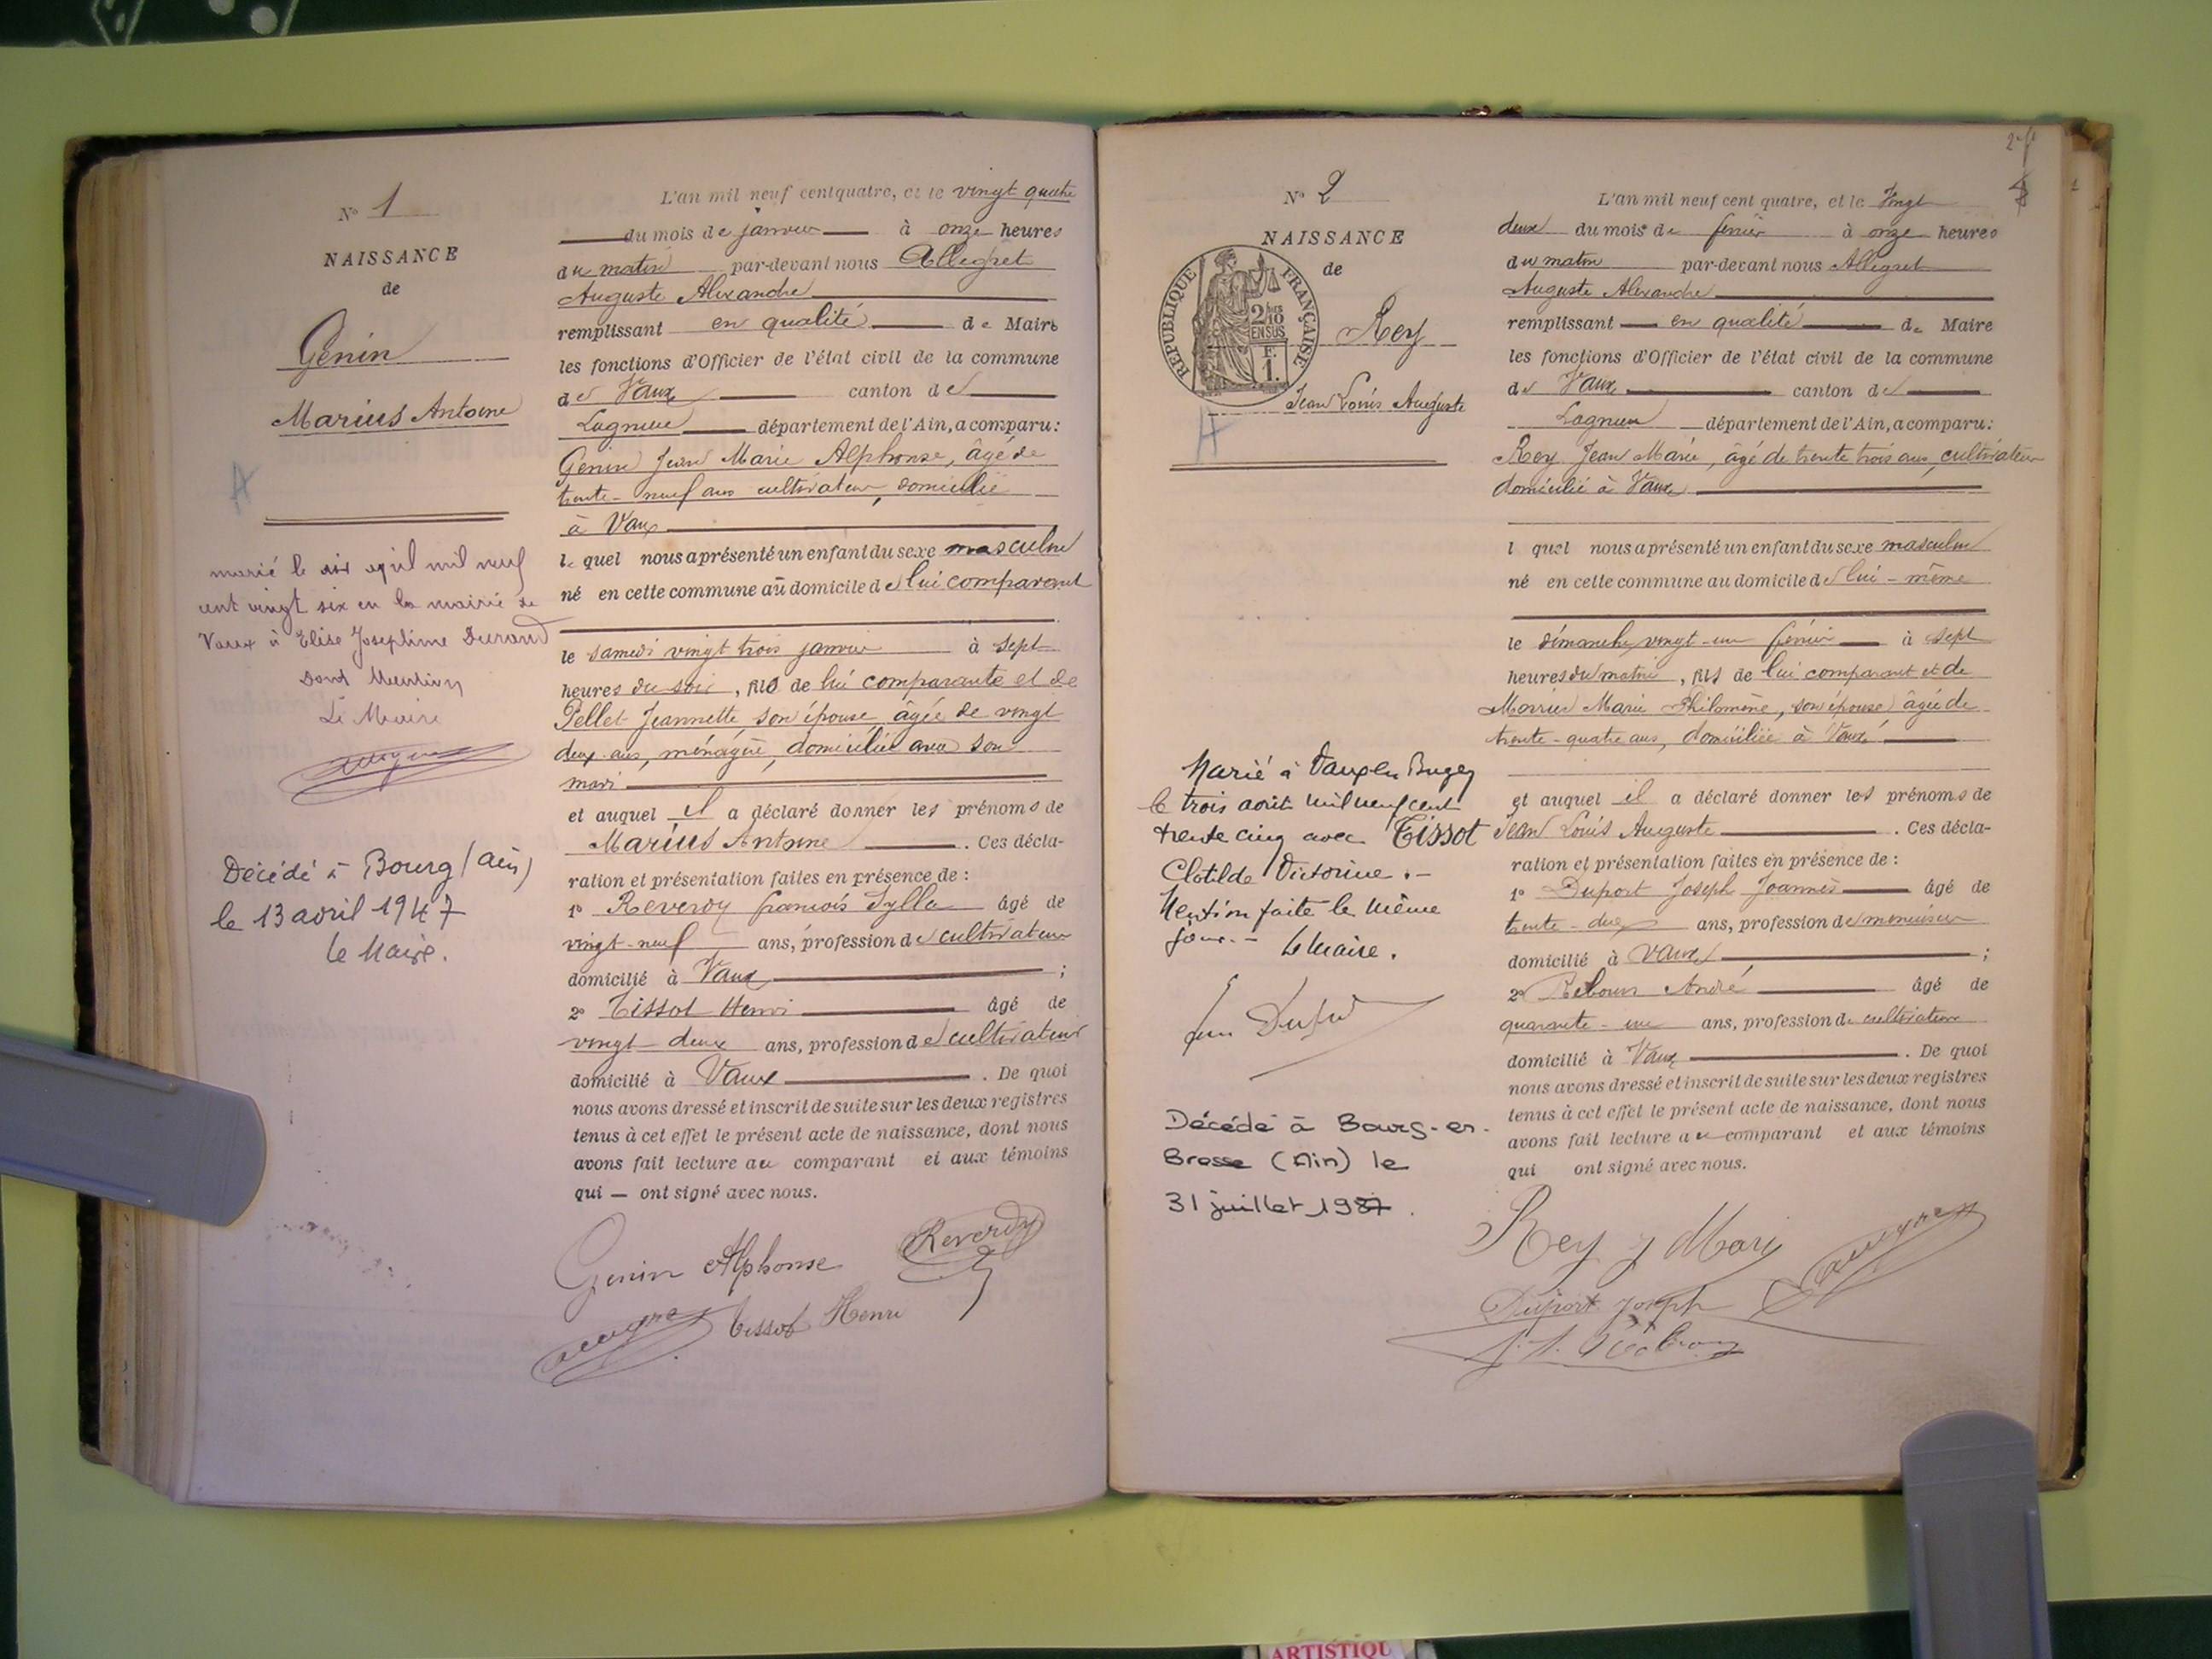 N° 1
NAISSANCE
de
Genin
Marius Antoine
A
marié le dix avril mil neuf
cent vingt six en la mairie de
Vaux à Elise Joséphine Durand
Dont Mention
Le Maire
Décédé à Bourg (Ain)
le 13 avril 1947
le Maire.
L'an mil neuf cent quatre, et le vingt quatre
du mois de janvier à onze heures
du matin par-devant nous Allegret
Auguste Alexandre
remplissant en qualité de Maire
les fonctions d'Officier de l'état civil de la commune
de Vaux canton de
Lagnieu département de l'Ain, a comparu:
Genin Jean Marie Alphonse, âgé de
trente-neuf ans cultivateur, domicilié
à Vaux
le quel nous a présenté un enfant du sexe masculin
né en cette commune au domicile de lui comparant
le samedi vingt trois janvier à sept
heures du soir, fils de lui comparante et de
Pellet Jeannette son épouse âgée de vingt
deux ans, ménagère, domiciliée avec son
mari
et auquel il a déclaré donner les prénoms de
Marius Antoine . Ces décla-
ration et présentation faites en présence de :
1° Reverdy françois Sylla âgé de
vingt-neuf ans, profession de cultivateur
domicilié à Vaux ;
2° Tissot Henri âgé de
vingt deux ans, profession de cultivateur
domicilié à Vaux . De quoi
nous avons dressé et inscrit de suite sur les deux registres
tenus à cet effet le présent acte de naissance, dont nous
avons fait lecture au comparant et aux témoins
qui — ont signé avec nous.
Genin Alphonse Reverdy
Tissot Henri
N° 2
NAISSANCE
de
REPUBLIQUE FRANÇAISE
2/10 EN SUS
F. 1.
Rey
Jean Louis Auguste
A
Marié à Vaux en Bugey
le trois août mil neuf cent
trente cinq avec Tissot
Clotilde Victorine .-
Mention faite le même
jour. - Le Maire.
Décédé à Bourg-en-
Bresse (Ain) le
31 juillet 1987.
L'an mil neuf cent quatre, et le Vingt
deux du mois de février à onze heures
du matin par-devant nous Allegret
Auguste Alexandre
remplissant en qualité de Maire
les fonctions d'Officier de l'état civil de la commune
de Vaux canton de
Lagnieu département de l'Ain, a comparu:
Rey Jean Marie, âgé de trente trois ans, cultivateur
domicilié à Vaux
l quel nous a présenté un enfant du sexe masculin
né en cette commune au domicile de lui-même
le dimanche vingt-un février à sept
heures du matin, fils de lui comparant et de
Marie Philomène, son épouse âgée de
trente-quatre ans, domiciliée à Vaux
et auquel il a déclaré donner les prénoms de
Jean Louis Auguste . Ces décla-
ration et présentation faites en présence de :
1° Duport Joseph Joannès âgé de
trente-deux ans, profession de menuisier
domicilié à Vaux ;
2° André âgé de
quarante-un ans, profession de cultivateur
domicilié à Vaux . De quoi
nous avons dressé et inscrit de suite sur les deux registres
tenus à cet effet le présent acte de naissance, dont nous
avons fait lecture au comparant et aux témoins
qui ont signé avec nous.
Rey J Marie
Duport Joseph
ARTISTIQU